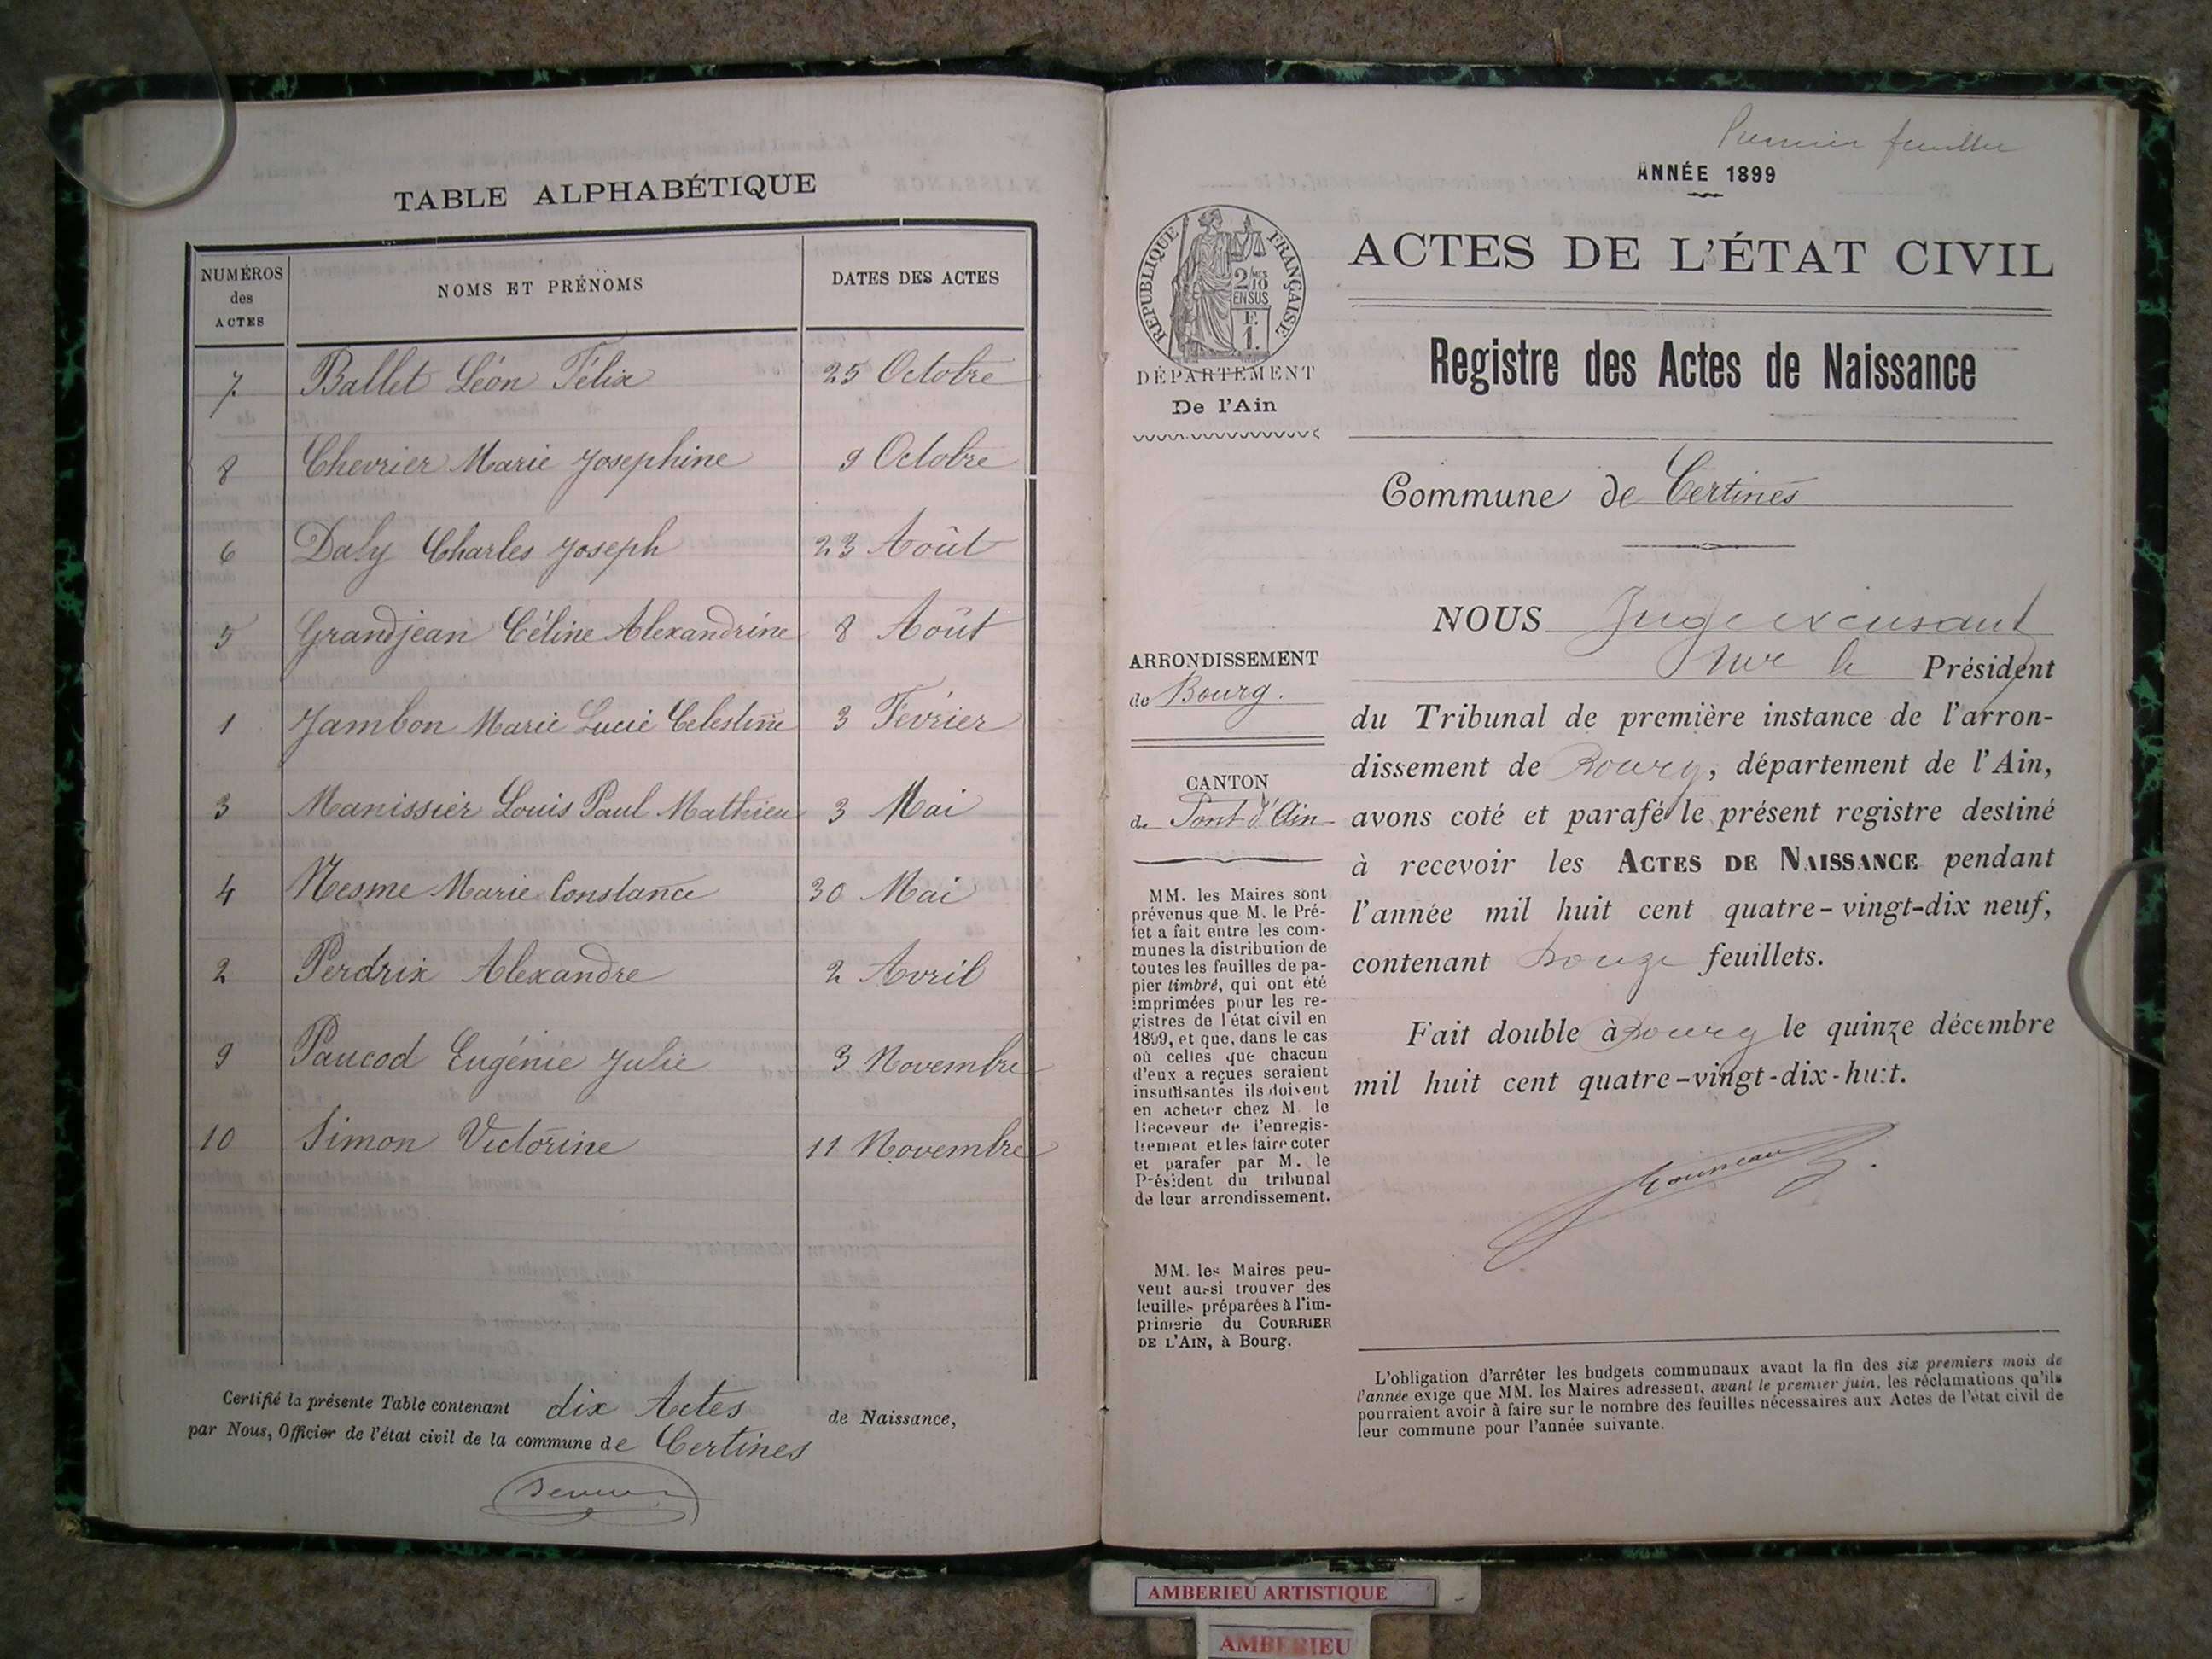 TABLE ALPHABÉTIQUE
NUMÉROS des ACTES
NOMS ET PRÉNOMS
DATES DES ACTES
7 Ballet Léon Félix 25 Octobre
8 Chevrier Marie Josephine 9 Octobre
6 Daly Charles Joseph 23 Août
5 Grandjean Céline Alexandrine 8 Août
1 Jambon Marie Lucie Celestine 3 Février
3 Manissier Louis Paul Mathieu 3 Mai
4 Nesme Marie Constance 30 Mai
2 Perdrix Alexandre 2 Avril
9 Paucod Eugénie Julie 3 Novembre
10 Simon Victorine 11 Novembre
Certifié la présente Table contenant dix Actes de Naissance,
par Nous, Officier de l'état civil de la commune de Certines
Premier feuillet
ANNÉE 1899
RÉPUBLIQUE FRANÇAISE
2/10
EN SUS
F.
1.
DÉPARTEMENT
De l'Ain
ACTES DE L'ÉTAT CIVIL
Registre des Actes de Naissance
Commune de Certines
ARRONDISSEMENT
de Bourg.
CANTON
de Pont d'Ain
MM. les Maires sont
prévenus que M. le Pré-
fet a fait entre les com-
munes la distribution de
toutes les feuilles de pa-
pier timbré, qui ont été
imprimées pour les re-
gistres de l'état civil en
1899, et que, dans le cas
où celles que chacun
d'eux a reçues seraient
insuffisantes ils doivent
en acheter chez M. le
Receveur de l'enregis-
trement et les faire coter
et parafer par M. le
Président du tribunal
de leur arrondissement.
MM. les Maires peu-
vent aussi trouver des
feuilles préparées à l'im-
primerie du COURRIER
DE L'AIN, à Bourg.
NOUS Juge
Président
du Tribunal de première instance de l'arron-
dissement de Bourg, département de l'Ain,
avons coté et parafé le présent registre destiné
à recevoir les ACTES DE NAISSANCE pendant
l'année mil huit cent quatre-vingt-dix neuf,
contenant douze feuillets.
Fait double à Bourg le quinze décembre
mil huit cent quatre-vingt-dix-huit.
L'obligation d'arrêter les budgets communaux avant la fin des six premiers mois de
l'année exige que MM. les Maires adressent, avant le premier juin, les réclamations qu'ils
pourraient avoir à faire sur le nombre des feuilles nécessaires aux Actes de l'état civil de
leur commune pour l'année suivante.
AMBERIEU ARTISTIQUE
AMBERIEU